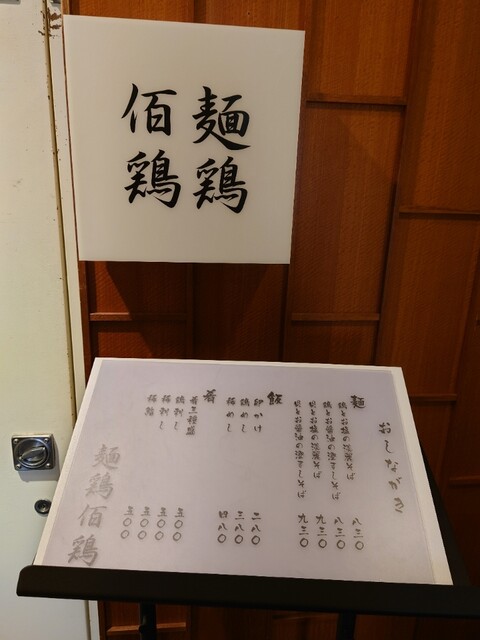 麺鶏
佰鶏
おしながき
麺
鶏とお塩の淡麗そば 八三〇
鶏とお醤油の濃すしそば 八三〇
貝とお塩の淡麗そば 九三〇
貝とお醤油の濃すしそば 九三〇
飯
卵かけ 二八〇
鶏めし 三八〇
佰めし 四八〇
肴
肴三種盛 五〇〇
鶏刺し 五〇〇
佰刺し 五〇〇
五〇〇
麺鶏佰鶏